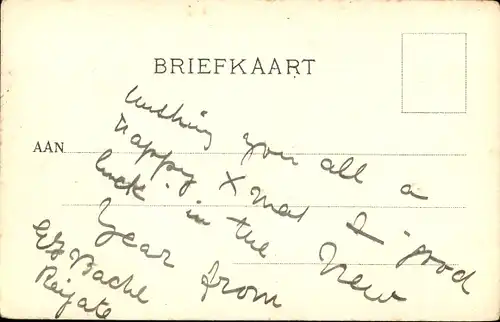 BRIEFKAART
AAN
Wishing you all a
Happy Xmas & good
luck in the New
Year from
Bache
Reigate